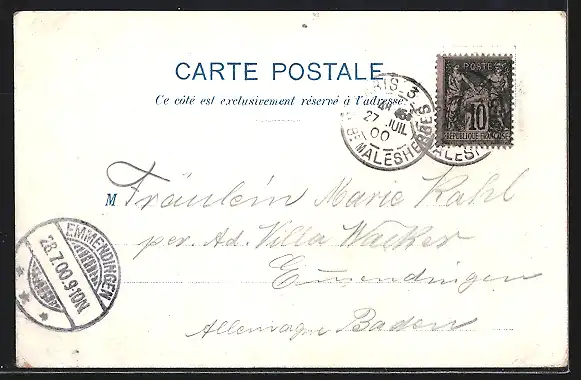 CARTE POSTALE
Ce côté est exclusivement réservé à l'adresse.
POSTE
10
REPUBLIQUE FRANÇAISE
PARIS 3
27 JUIL
00
Bd MALESHERBES
M Fräulein Marie Kahl
per. Ad. Villa Wacker
Emmendingen
Allemagne Baden
EMMENDINGEN
28.7.00.9-10N.